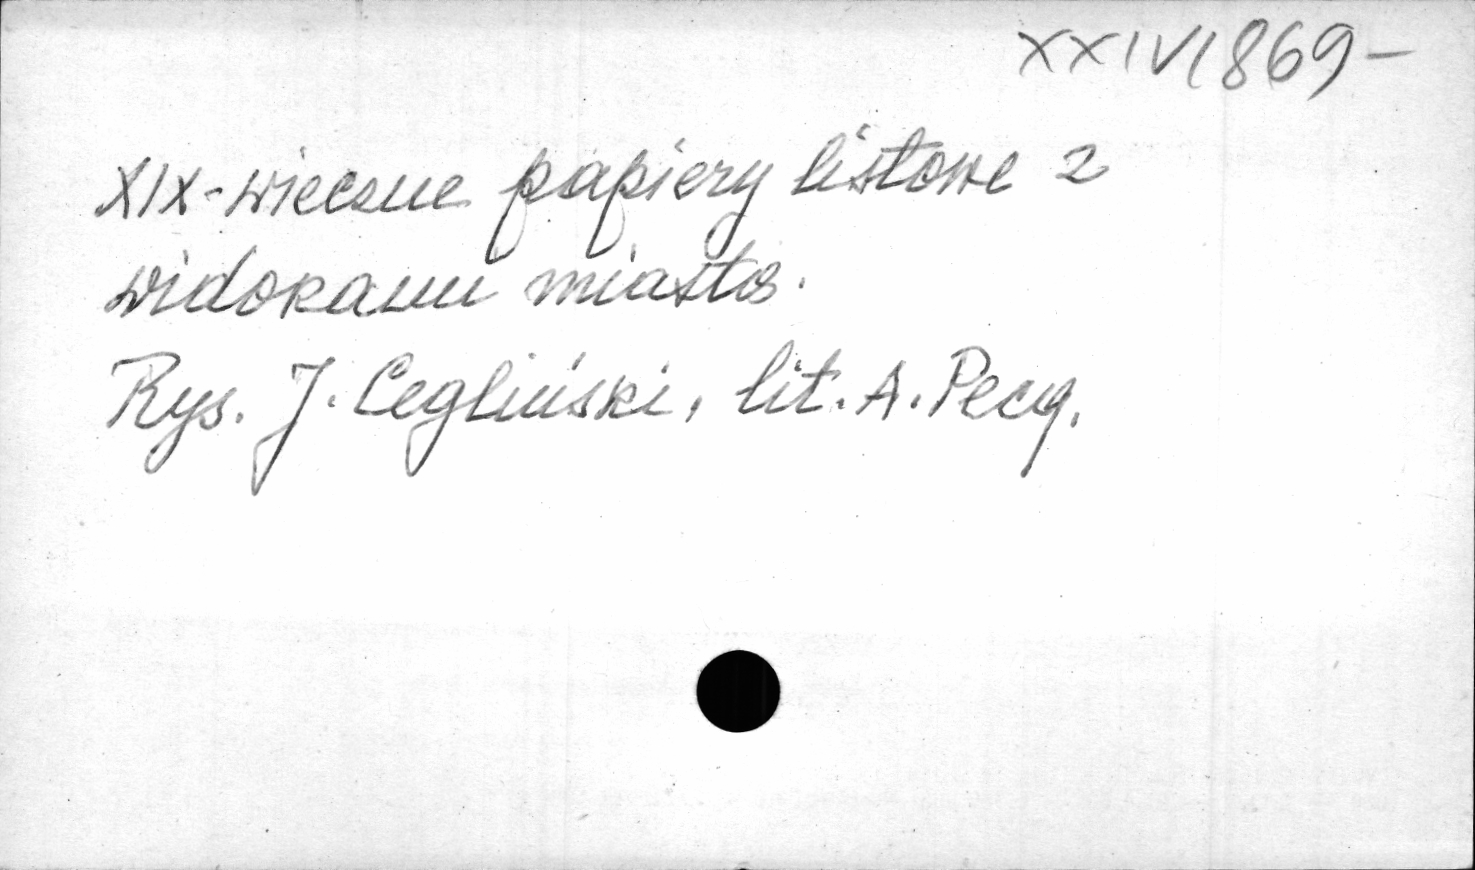 XXIV/869-
XIX-wieczne papiery listowe z
widokami miasta.
Rys. J. Cegliński, lit. A. Pecq.